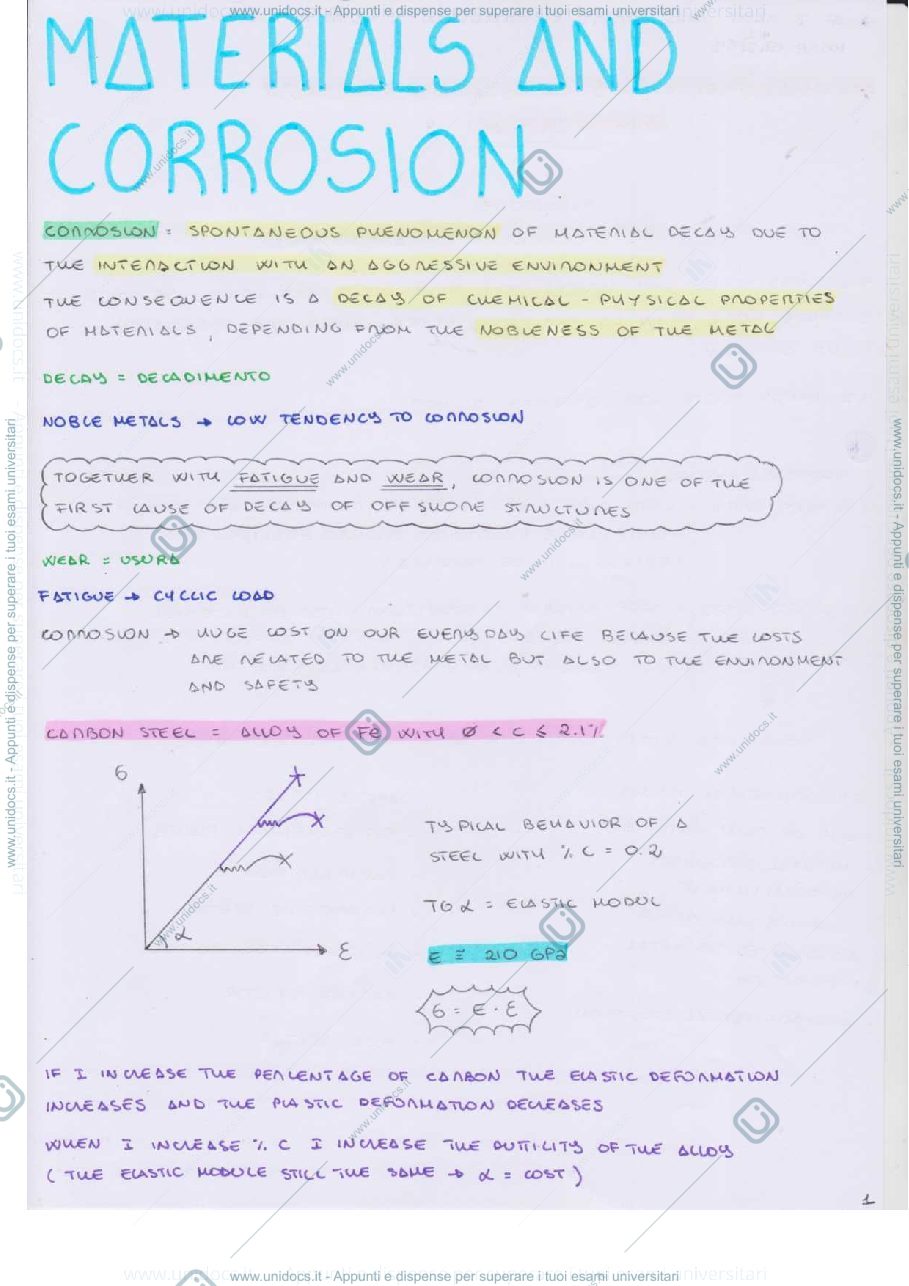 www.unidocs.it - Appunti e dispense per superare i tuoi esami universitari
MATERIALS AND
CORROSION
CORROSION : SPONTANEOUS PHENOMENON OF MATERIAL DECAY DUE TO
THE INTERACTION WITH AN AGGRESSIVE ENVIRONMENT
THE CONSEQUENCE IS A DECAY OF CHEMICAL - PHYSICAL PROPERTIES
OF MATERIALS, DEPENDING FROM THE NOBLENESS OF THE METAL
DECAY = DECADIMENTO
NOBLE METALS → LOW TENDENCY TO CORROSION
TOGETHER WITH FATIGUE AND WEAR, CORROSION IS ONE OF THE
FIRST CAUSE OF DECAY OF OFFSHORE STRUCTURES
WEAR = USURA
FATIGUE → CYCLIC LOAD
CORROSION → HUGE COST ON OUR EVERYDAY LIFE BECAUSE THE COSTS
ARE RELATED TO THE METAL BUT ALSO TO THE ENVIRONMENT
AND SAFETY
CARBON STEEL = ALLOY OF Fe WITH Ø < C ≤ 2.1%
σ
α
ε
TYPICAL BEHAVIOR OF A
STEEL WITH % C = 0.2
TG α = ELASTIC MODUL
E ≅ 210 GPa
σ = E · ε
IF I INCREASE THE PERCENTAGE OF CARBON THE ELASTIC DEFORMATION
INCREASES AND THE PLASTIC DEFORMATION DECREASES
WHEN I INCREASE % C I INCREASE THE DUTTILITY OF THE ALLOY
( THE ELASTIC MODULE STILL THE SAME → α = COST )
1
www.unidocs.it - Appunti e dispense per superare i tuoi esami universitari
www.unidocs.it - Appunti e dispense per superare i tuoi esami universitari
www.unidocs.it - Appunti e dispense per superare i tuoi esami universitari
www.unidocs.it
www.unidocs.it
www.unidocs.it
www.unidocs.it
www.unidocs.it
www.unidocs.it